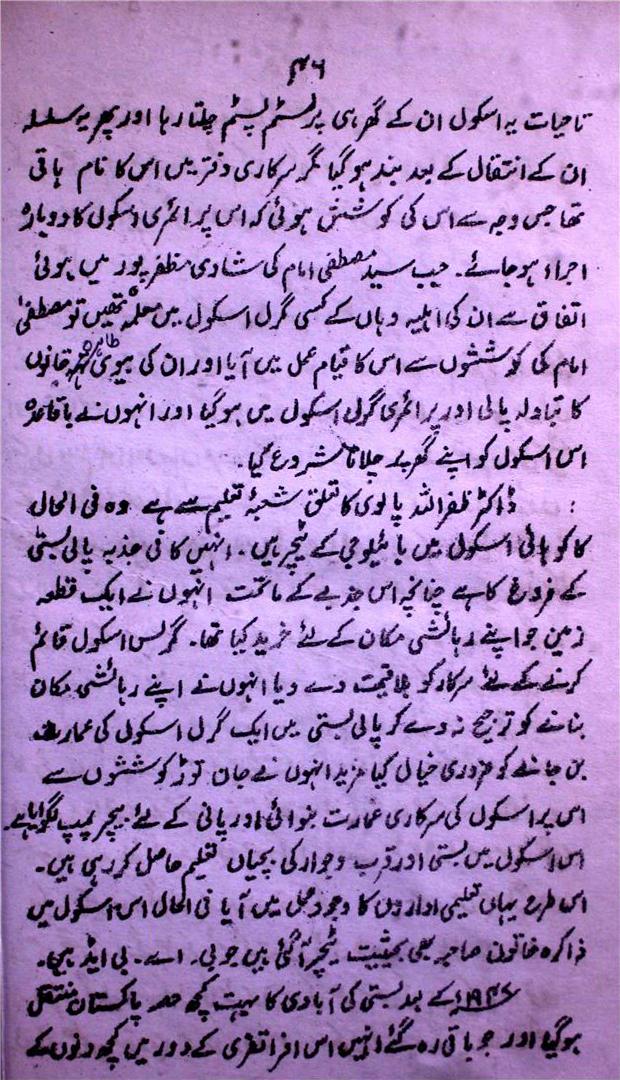 ۴۶
تا حیات یہ اسکول ان کے گھر ہی پر لسٹم پسٹم چلتا رہا اور پھر یہ سلسلہ
ان کے انتقال کے بعد بند ہو گیا مگر سرکاری دفتر میں اس کا نام باقی
تھا جس وجہ سے اس کی کوشش ہوئی کہ اس پرائمری اسکول کا دوبارہ
اجراء ہو جائے۔ جب سید مصطفی امام کی شادی مظفر پور میں ہوئی
اتفاق سے ان کی اہلیہ وہاں کے کسی گرل اسکول میں معلمہ تھیں تو مصطفیٰ
امام کی کوششوں سے اس کا قیام عمل میں آیا اور ان کی بیوی طاہرہ خاتون
کا تبادلہ پالی اور پرائمری گرل اسکول میں ہو گیا اور انہوں نے باقاعدہ
اس اسکول کو اپنے گھر پر چلانا شروع کیا۔
ڈاکٹر ظفر اللہ پالوی کا تعلق شعبۂ تعلیم سے ہے وہ فی الحال
کاکو ہائی اسکول میں بائیلوجی کے ٹیچر ہیں۔ انہیں کافی جذبہ پالی بستی
کے فروغ کا ہے چنانچہ اس جذبے کے ماتحت انہوں نے ایک قطعہ
زمین جو اپنے رہائشی مکان کے لئے خرید کیا تھا۔ گرلس اسکول قائم
کرنے کے لئے سرکار کو بلا قیمت دے دیا انہوں نے اپنے رہائشی مکان
بنانے کو ترجیح نہ دے کر پالی بستی میں ایک گرل اسکول کی عمارت
بن جانے کو ضروری خیال کیا مزید انہوں نے جان توڑ کوششوں سے
اس پر اسکول کی سرکاری عمارت بنوائی اور پانی کے لئے ہیچر پمپ لگوایا ہے۔
اس اسکول میں بستی اور قرب و جوار کی بچیاں تعلیم حاصل کر رہی ہیں۔
اس طرح یہاں تعلیمی اداروں کا وجود عمل میں آیا فی الحال اس اسکول میں
ذاکرہ خاتون صاحبہ بھی بحیثیت ٹیچر آ گئی ہیں جو بی۔ اے۔ بی ایڈ ہیں۔
۱۹۴۷ء کے بعد بستی کی آبادی کا بہت کچھ حصہ پاکستان منتقل
ہو گیا اور جو باقی رہ گئے انہیں اس افراتفری کے دور میں کچھ دنوں کے